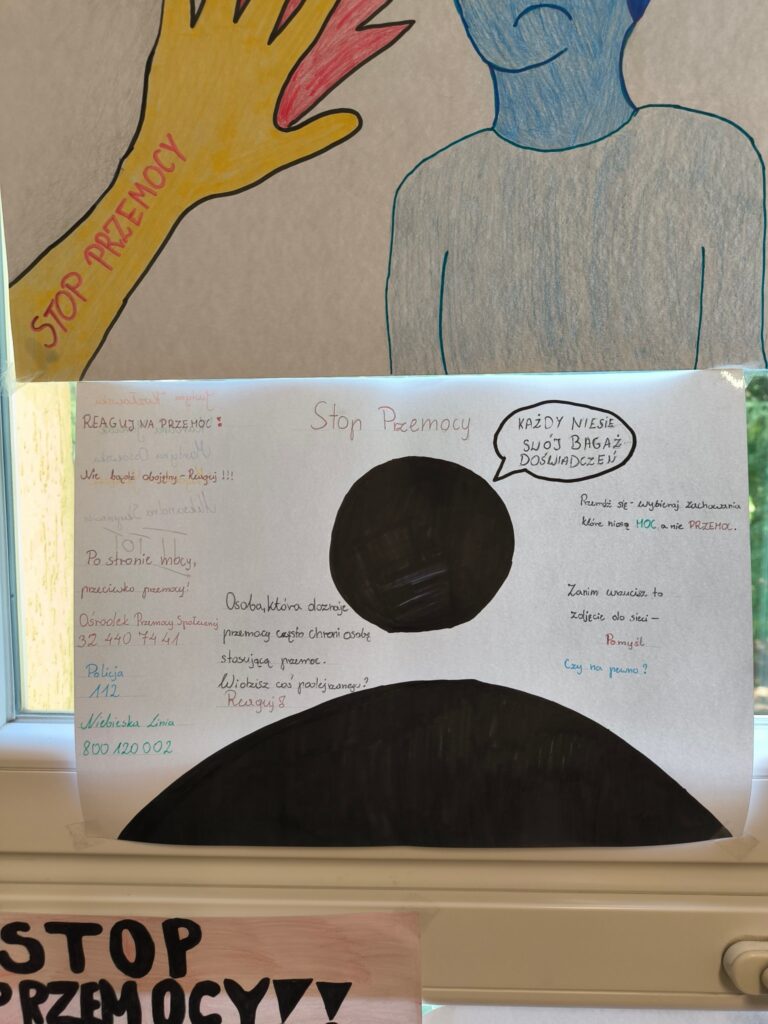 STOP PRZEMOCY
REAGUJ NA PRZEMOC!
Nie bądź obojętny - Reaguj!!!
Po stronie mocy,
przeciwko przemocy!
Ośrodek Przemocy Społecznej
32 440 74 41
Policja
112
Niebieska Linia
800 120 002
Stop Przemocy
Osoba, która doznaje
przemocy często chroni osobę
stosującą przemoc.
Widzisz coś podejrzanego?
Reaguj!
KAŻDY NIESIE
SWÓJ BAGAŻ
DOŚWIADCZEŃ
się - wybieraj zachowania
które niosą MOC a nie PRZEMOC.
Zanim wrzucisz to
zdjęcie do sieci -
Pomyśl
Czy na pewno?
STOP
PRZEMOCY!!